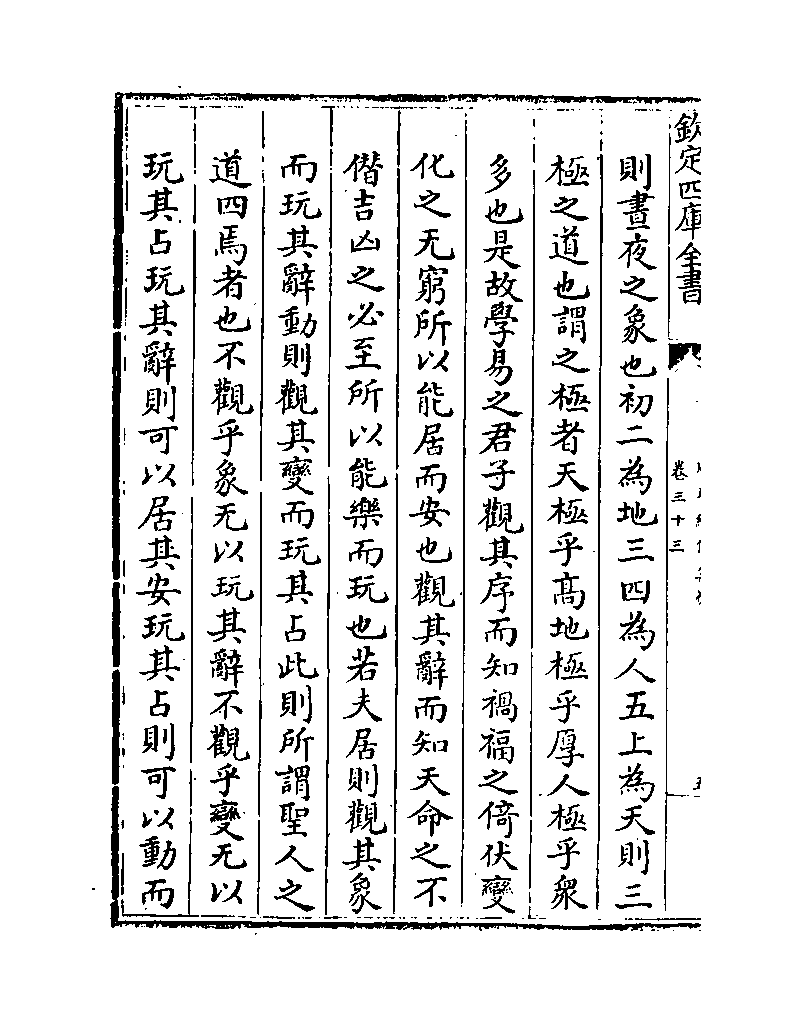 欽定四庫全書
卷三十三
則晝夜之象也初二為地三四為人五上為天則三
極之道也謂之極者天極乎髙地極乎厚人極乎衆
多也是故學易之君子觀其序而知禍福之倚伏變
化之无窮所以能居而安也觀其辭而知天命之不
僭吉凶之必至所以能樂而玩也若夫居則觀其象
而玩其辭動則觀其變而玩其占此則所謂聖人之
道四焉者也不觀乎象无以玩其辭不觀乎變无以
玩其占玩其辭則可以居其安玩其占則可以動而